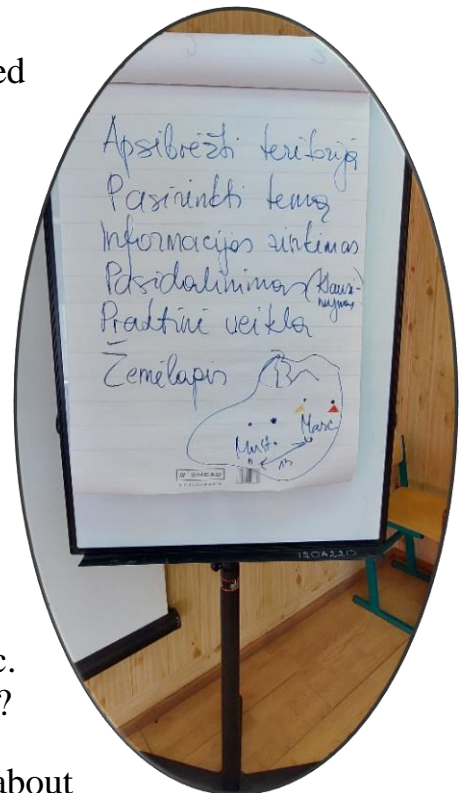 ed
Apsibrėžti teritoriją
Pasirinkti temą
Informacijos rinkimas
Pasidalinimas (klausi-
nojnas)
Praktinė veikla
Žemėlapis
Must.
Marc.
c.
?
about